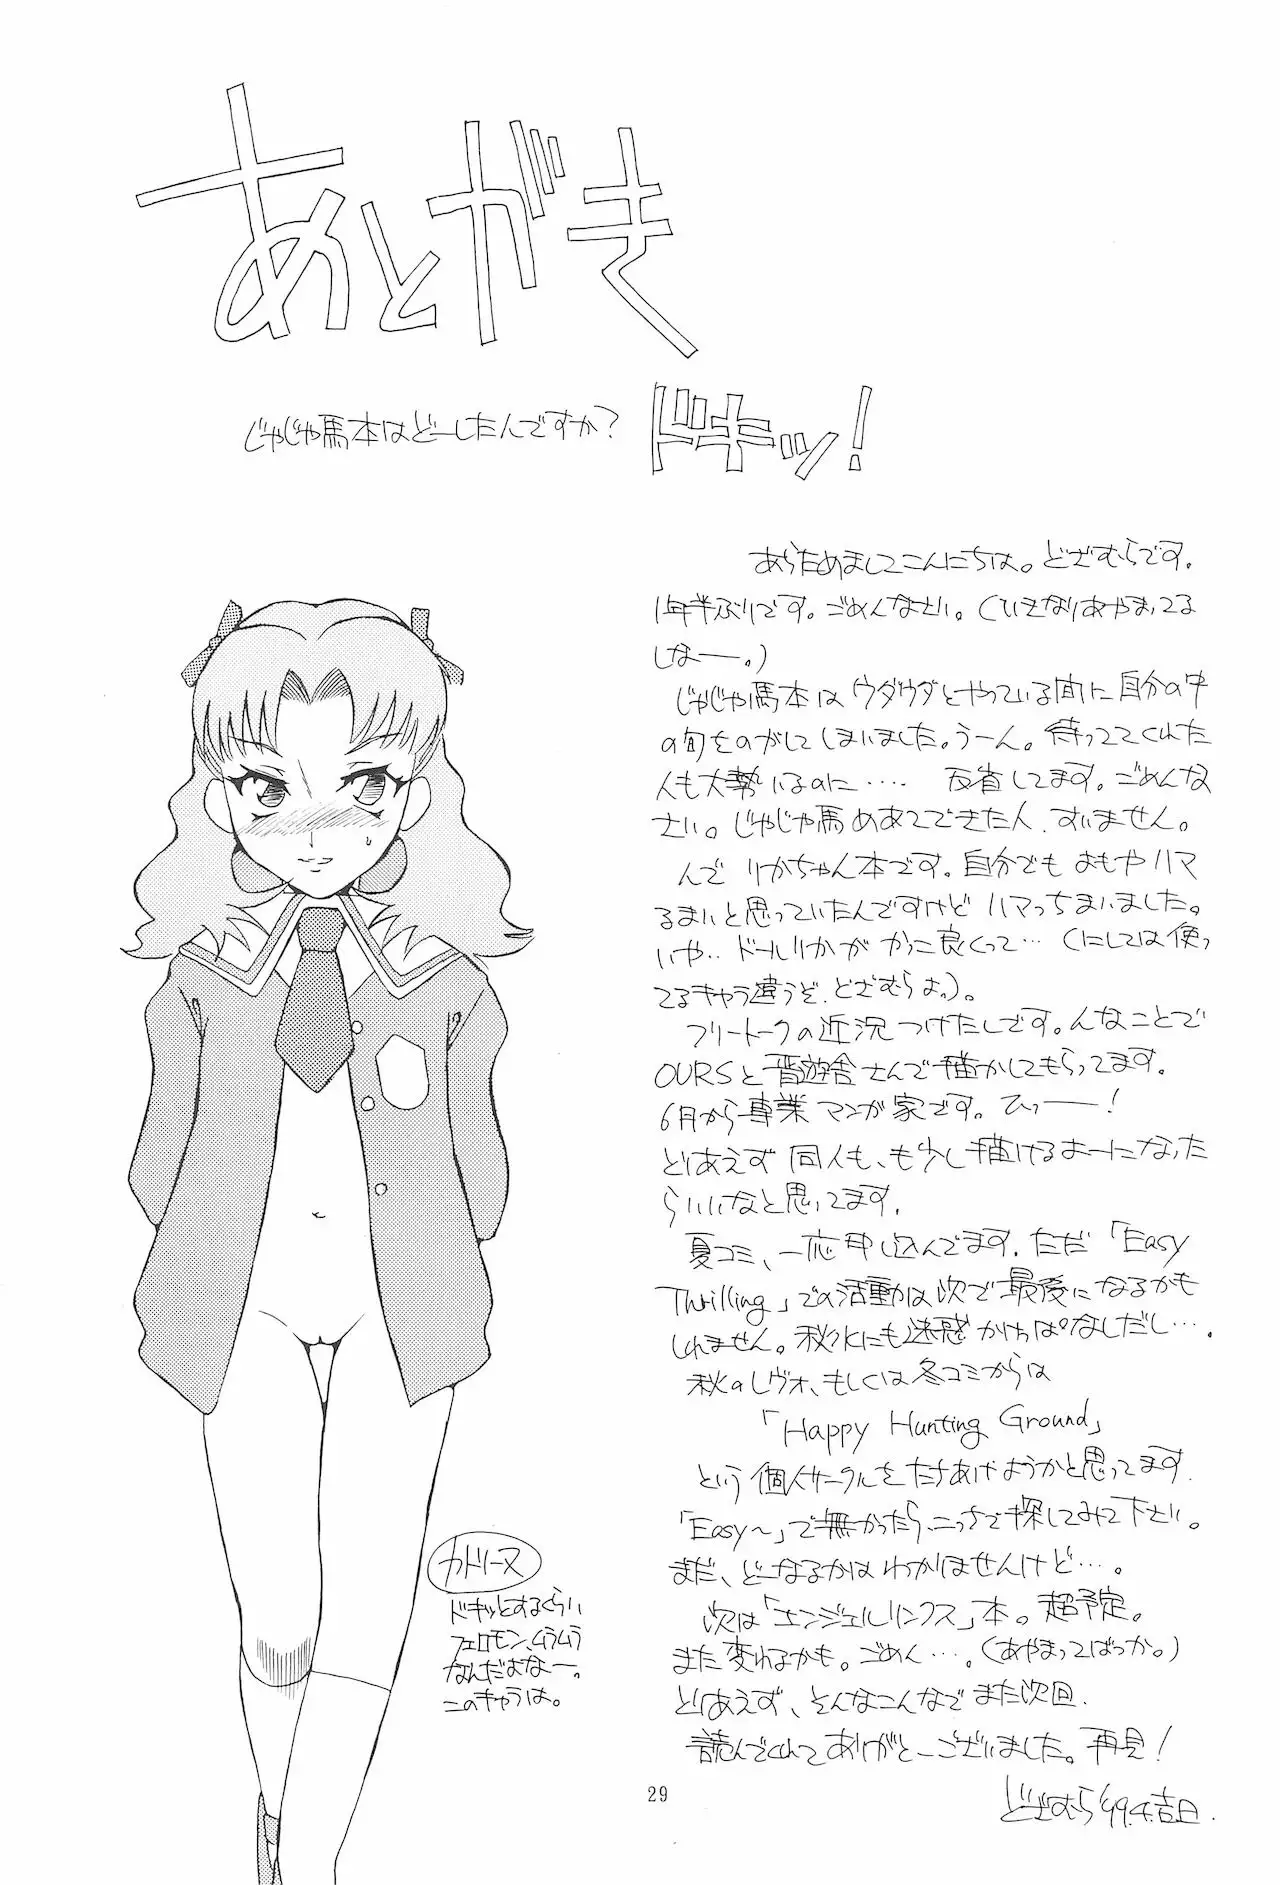 あとがき
じゃじゃ馬本はどーしたんですか？
ドキッ！
あらためましてこんにちは。どざむらです。
1年半ぶりです。ごめんなさい。（いきなりあやまってる
しなー。）
じゃじゃ馬本はウダウダとやっている間に自分の中
の旬をのがしてしまいました。うーん。待っててくれた
人も大勢いるのに‥‥　反省してます。ごめんな
さい。じゃじゃ馬めあてできた人、すいません。
んでりかちゃん本です。自分でもよもやハマ
るまいと思っていたんですけどハマっちまいました。
いや‥ドールりかがかっこ良くって…（にしては使っ
てるキャラ違うぞ、どざむらよ。）。
フリートークの近況つけたしです。んなことで
OURSと晋遊舎さんで描かしてもらってます。
6月から専業マンガ家です。ひぃーー！
とりあえず同人も、も少し描けるよーになった
らいいなと思ってます。
夏コミ、一応申し込んでます。ただ「Easy
Thrilling」での活動は次で最後になるかも
しれません。秋水にも迷惑かけっぱなしだし…．
秋のレヴォ、もしくは冬コミからは
「Happy Hunting Ground」
という個人サークルをたちあげようかと思ってます．
「Easy〜」で無かったら、こっちで探してみて下さい。
まだ、どーなるかはわかりませんけど…．
次は「エンジェルリンクス」本。超予定。
また変わるかも。ごめん…．（あやまってばっか。）
とりあえず、そんなこんなでまた次回．
読んでくれてありがと－ございました。再見！
どざむら '99.4.吉日．
カドリーヌ
ドキッとするくらい
フェロモン、ムラムラ
なんだよなー。
このキャラは。
29